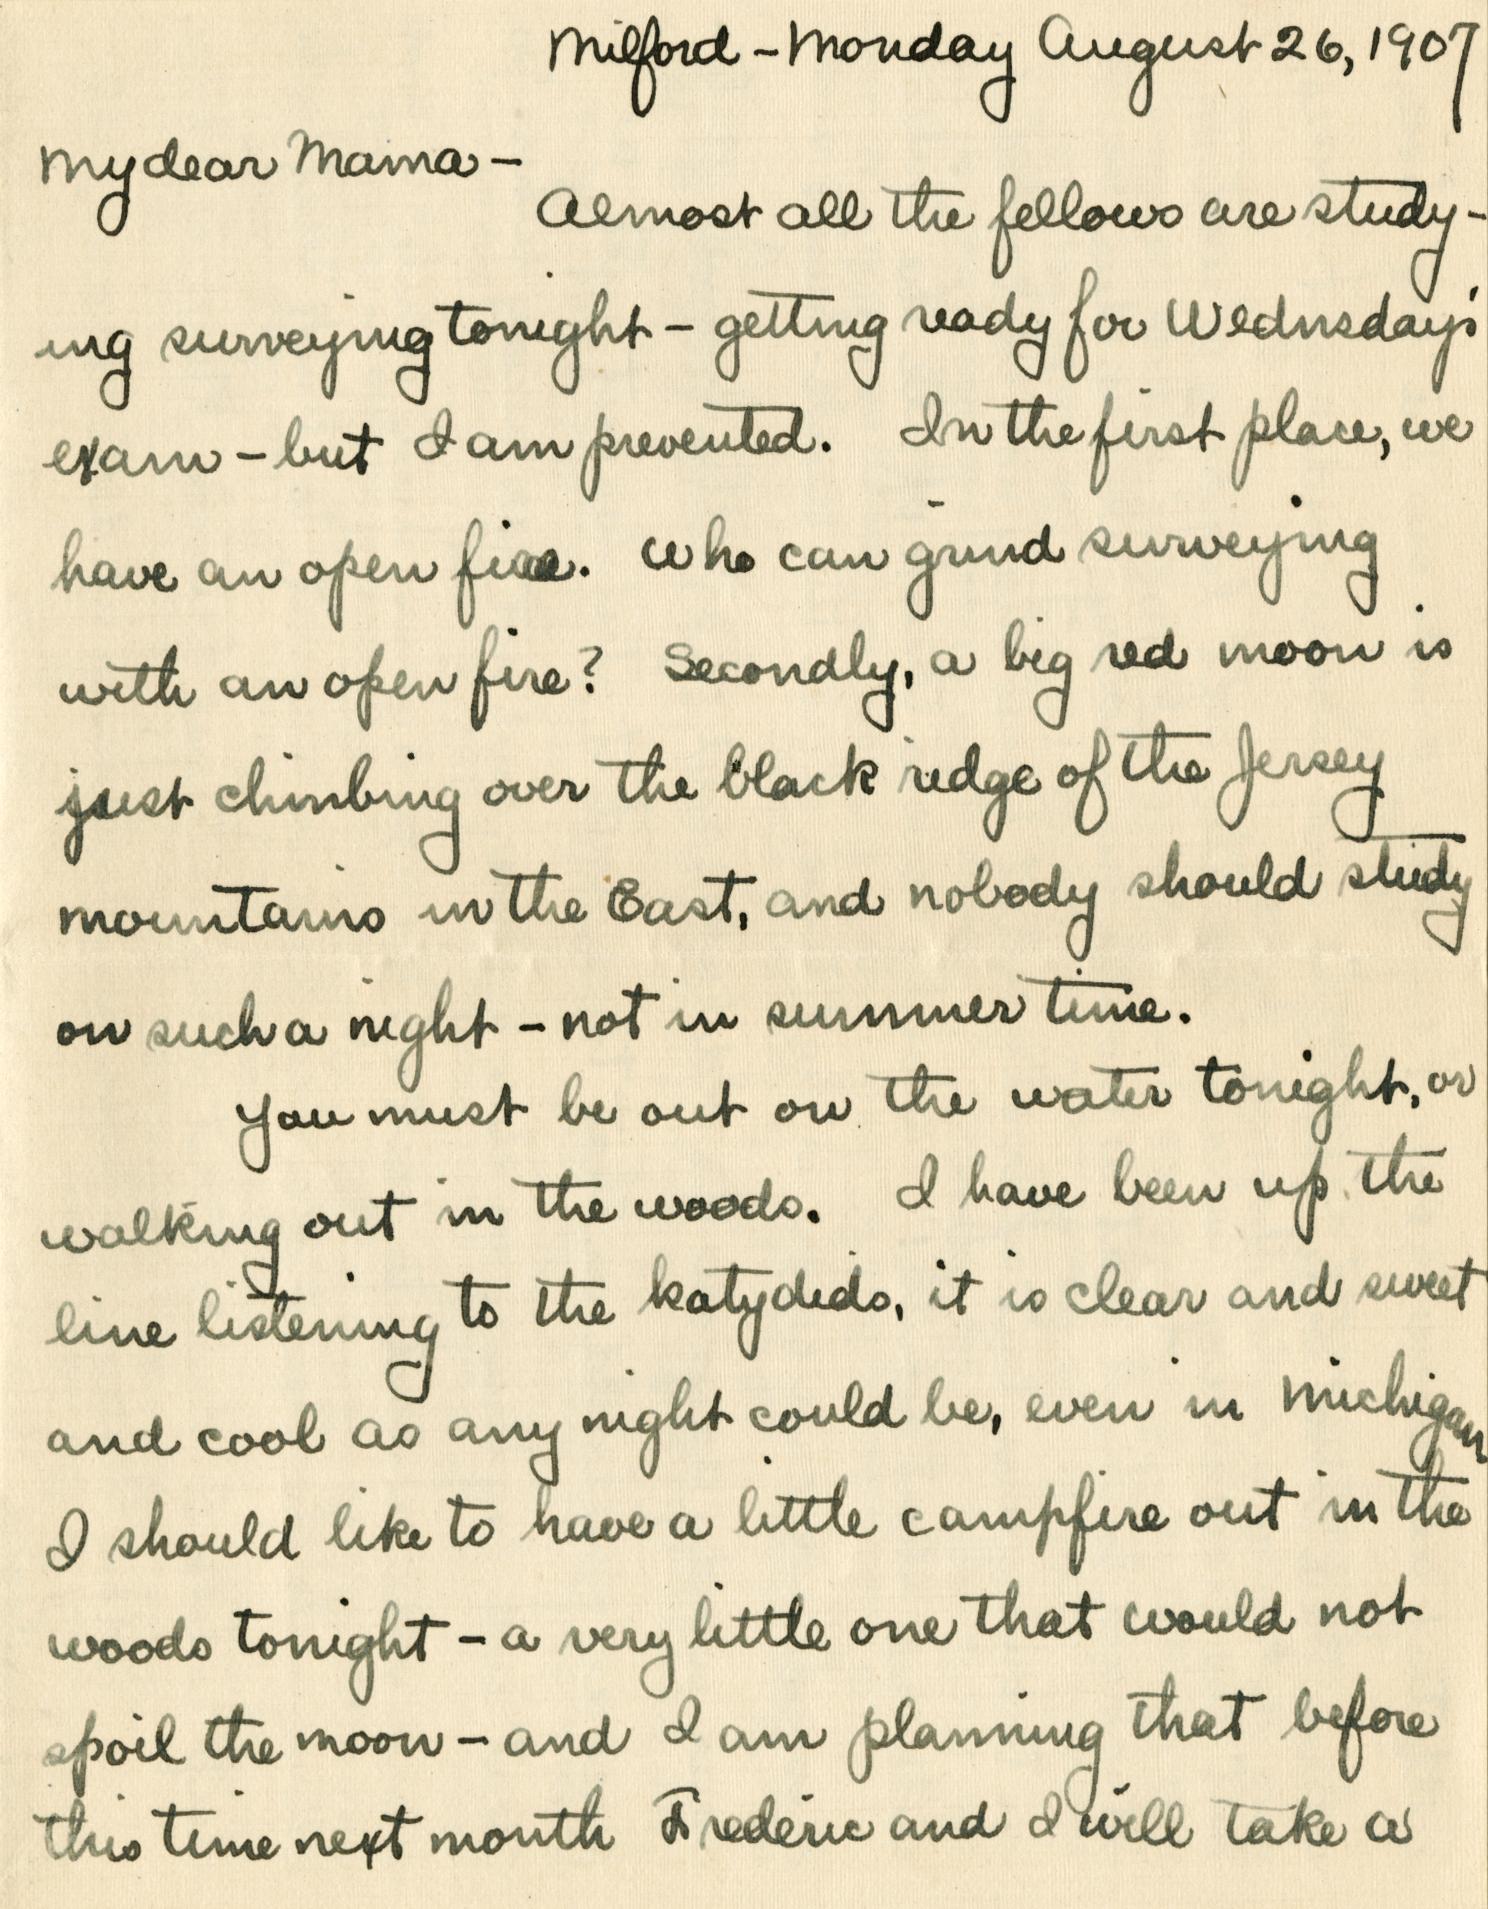 Milford - Monday August 26, 1907
My dear Mama -
Almost all the fellows are study-
ing surveying tonight - getting ready for Wednsday's
exam - but I am prevented. In the first place, we
have an open fire. Who can grind surveying
with an open fire? Secondly, a big red moon is
just climbing over the black ridge of the Jersey
mountains in the East, and nobody should study
on such a night - not in summer time.
You must be out on the water tonight, or
walking out in the woods. I have been up the
line listening to the katydids, it is clear and sweet
and cool as any night could be, even in Michigan
I should like to have a little campfire out in the
woods tonight - a very little one that would not
spoil the moon - and I am planning that before
this time next month Frederic and I will take a